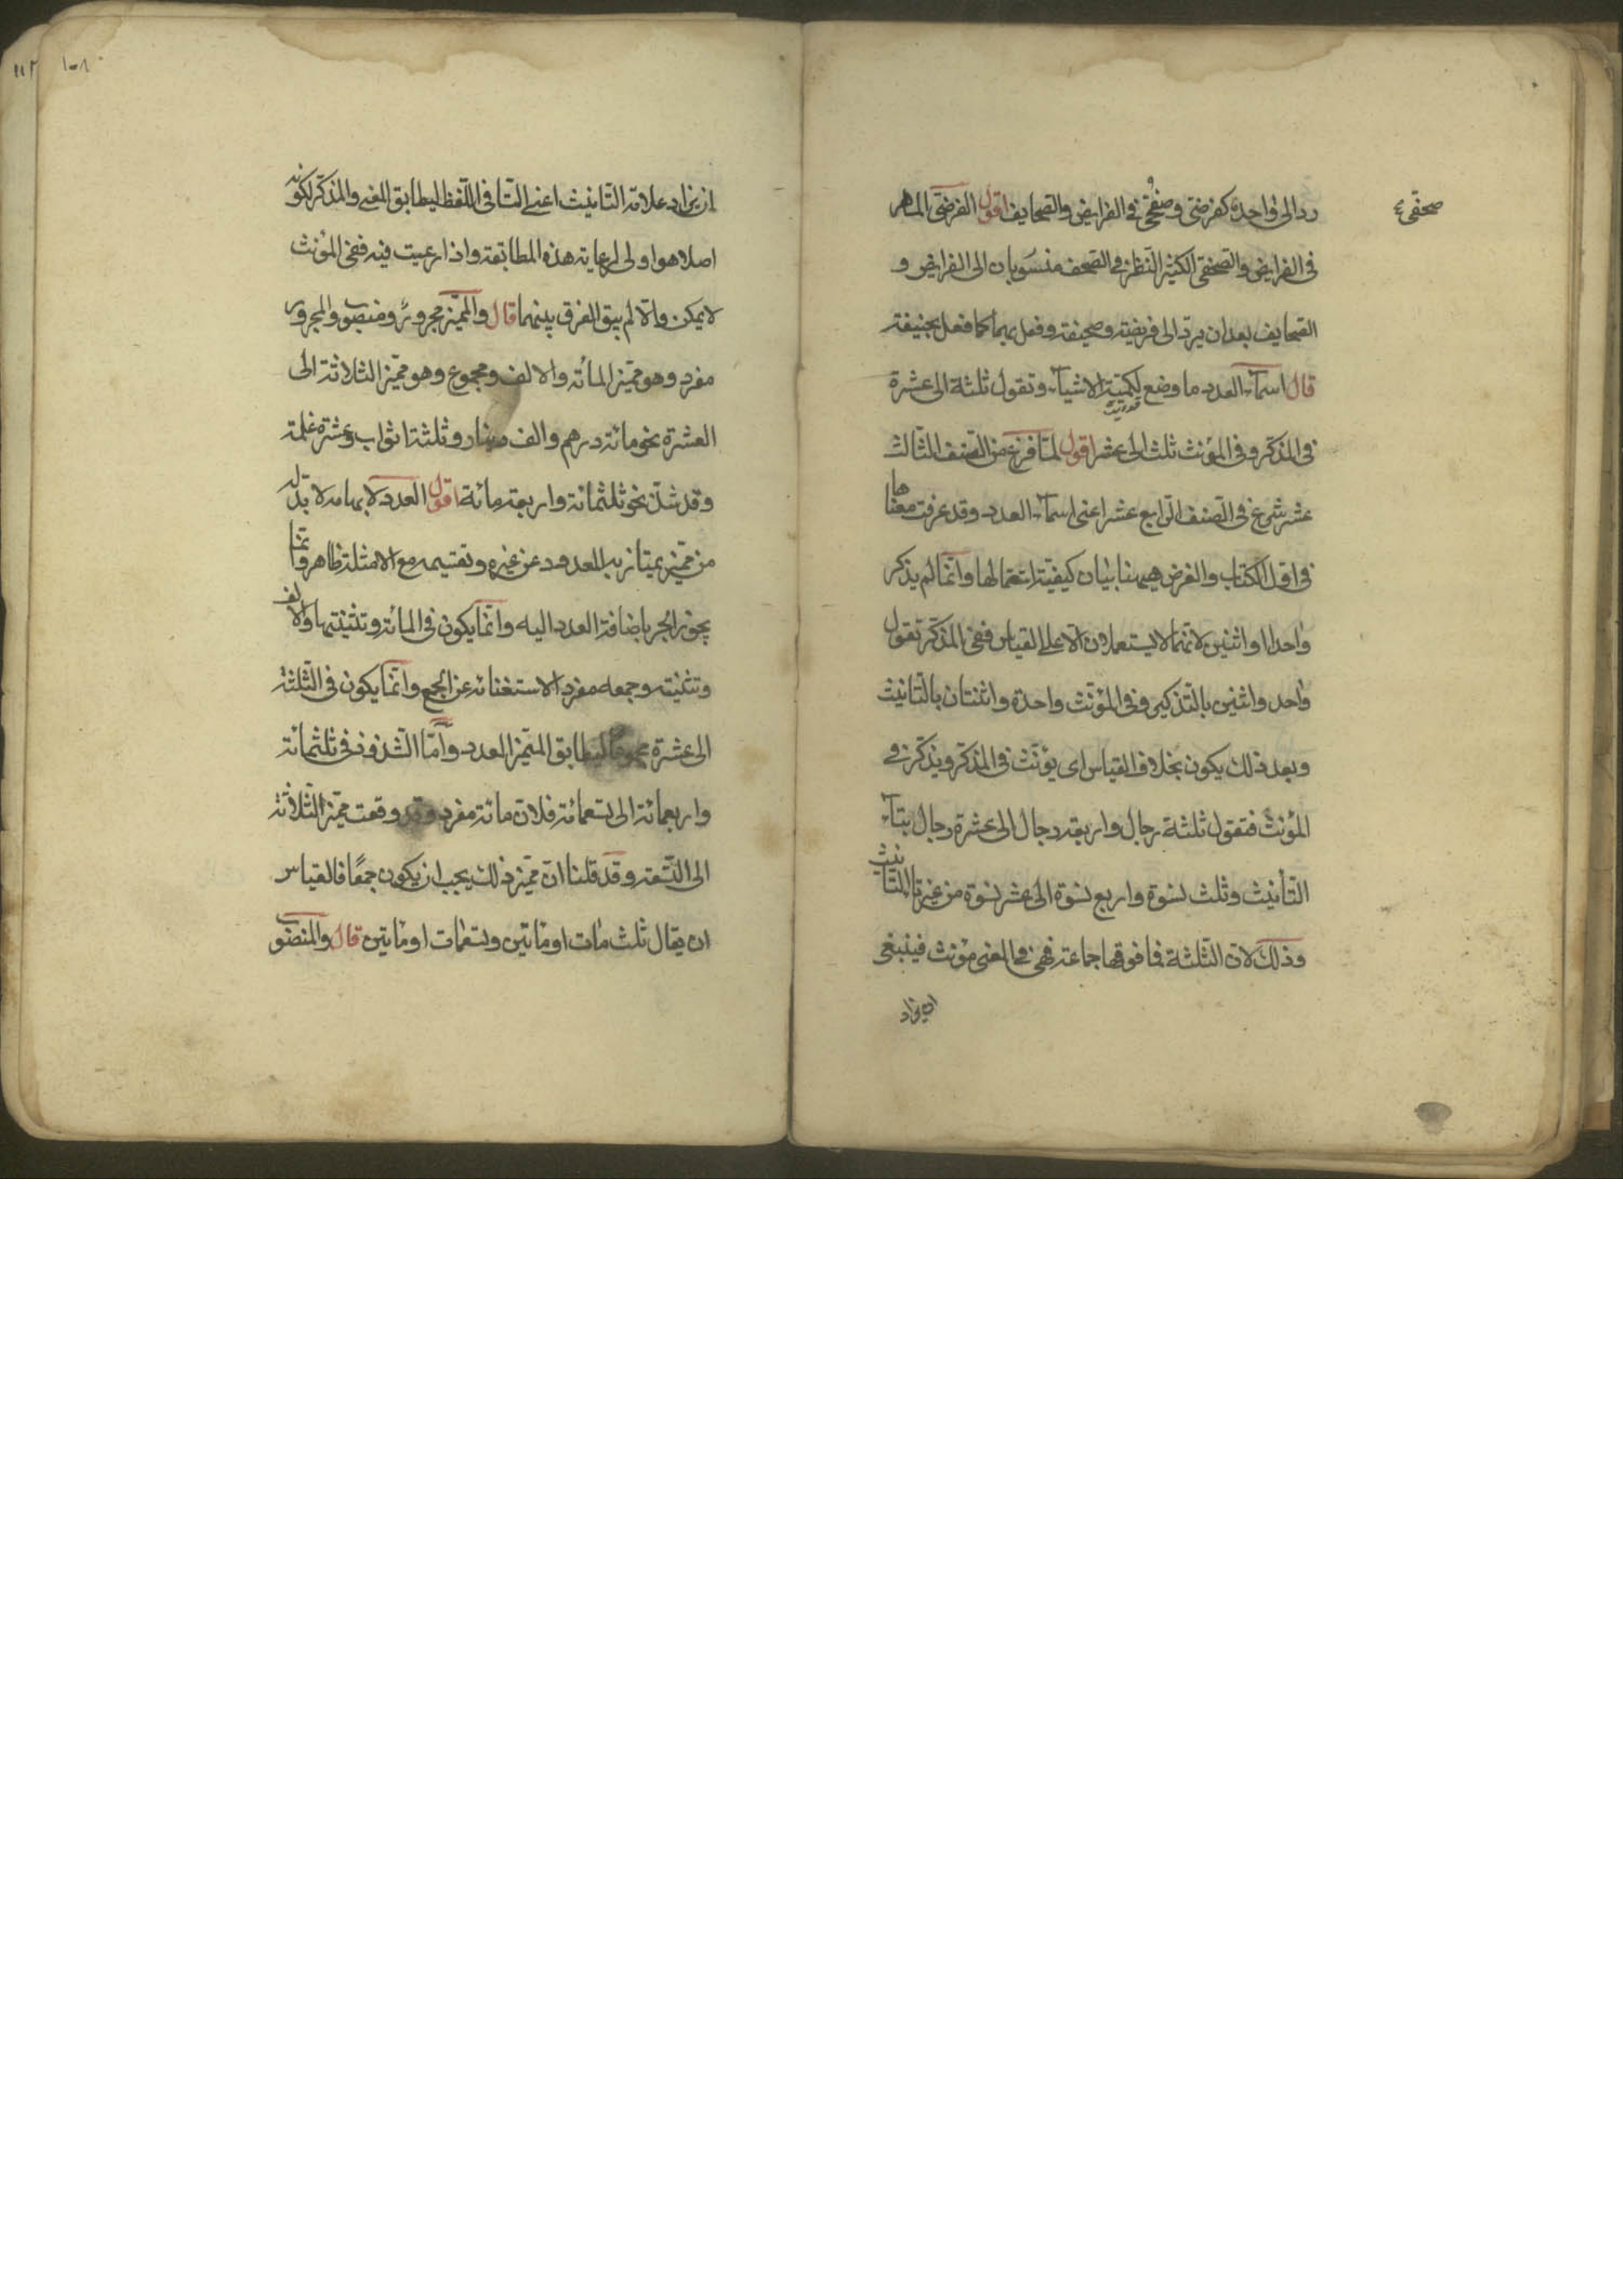 رد الى واحده كفرضى وصحفى فى الفرايض والصحايف اقول الفرضى الماهر
صحفى
فى الفرايض والصحفى الكثير النظر فى الصحف منسوبان الى الفرايض و
الصحايف بعد ان يرد الى فريضة وصحيفة وفعل بهما كما فعل بحنيفة
قال اسماء العدد ما وضع لكمية الاشياء وتقول ثلثة الى عشرة
فى المذكر وفى المؤنث ثلث الى عشر اقول لما فرغ من الصنف الثالث
عشر شرع فى الصنف الرابع عشر اعنى اسماء العدد وقد عرفت معناها
فى اول الكتاب والغرض هيهنا بيان كيفية استعمالها وانما لم يذكر
واحدا واثنين لانهما لا يستعملان الا على القياس ففى المذكر تقول
واحد واثنين بالتذكير وفى المؤنث واحدة واثنتان بالتانيث
وبعد ذلك يكون بخلاف القياس اى يؤنث فى المذكر ويذكر فى
المؤنث فتقول ثلثة رجال واربعة رجال الى عشرة رجال بتاء
التأنيث وثلث نسوة واربع نسوة الى عشر نسوة من غير تاء التانيث
وذلك لان الثلثة فما فوقها جماعة فهى فى المعنى مؤنث فينبغى
ان يزاد
١٠٨
١١٢
ان يزاد علامة التانيث اعنى التا فى اللفظ ليطابق المعنى والمذكر لكونه
اصلا هو اولى لرعاية هذه المطابقة واذا رعيت فيه ففى المؤنث
لا يمكن والا لم يبق الفرق بينهما قال والمميز مجرور ومنصوب والمجرور
مفرد وهو مميز المائة والالف ومجموع وهو مميز الثلاثة الى
العشرة نحو مائة درهم والف دينار وثلثة اثواب وعشرة غلمة
وقد شذ نحو ثلثمائة واربعة مائة اقول العدد لابهامه لا بد له
من مميز يمتاز به المعدود عن غيره وتقسيمه مع الامثلة ظاهر وانما
يجوز الجر باضافة العدد اليه وانما يكون فى المائة وتثنيتها والالف
وتثنيته وجمعه مفردا لاستغنائه عن الجمع وانما يكون فى الثلثة
الى عشرة مجموعا ليطابق المميز العدد واما الشذوذ فى ثلثمائة
واربعمائة الى تسعمائة فلان مائة مفرد وقد وقعت مميز الثلاثة
الى التسعة وقد قلنا ان مميز ذلك يجب ان يكون جمعا فالقياس
ان يقال ثلث مات او مايتين وتسعمات او مايتين قال والمنصوب